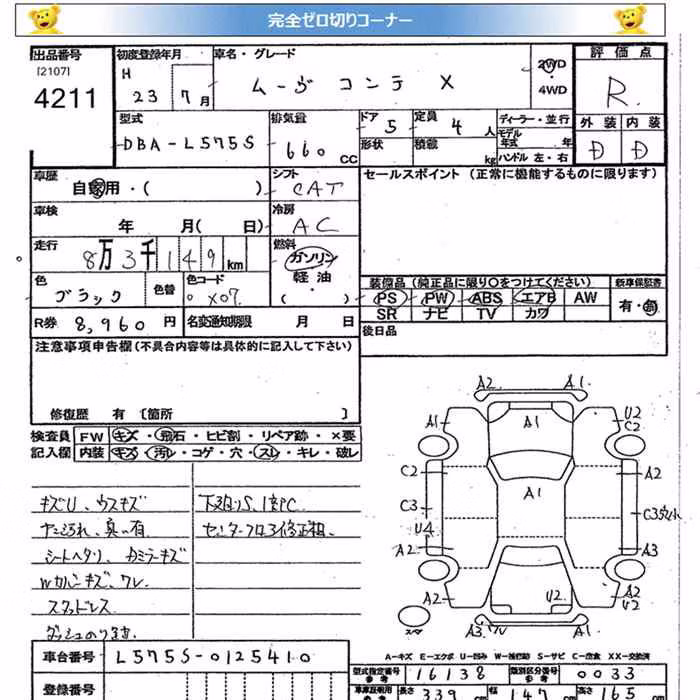 完全ゼロ切りコーナー
出品番号 初度登録年月 車名・グレード 評価点
[2107] H 2WD
4211 23 7月 ムーヴ コンテ X 4WD R
型式 排気量 ドア 5 定員 4人 ディーラー・並行 外装 内装
DBA-L575S 660 CC 形状 積載 kg モデル年式 年 D D
ハンドル 左・右
車歴 自家用・( ) シフト CAT セールスポイント (正常に機能するものに限ります)
車検 年 月( 日) 冷房 AC
走行 8万3千149km 燃料 ガソリン
軽油・( )
色 ブラック 色替 色コード X07 装備品 (純正品に限り○をつけてください) 新車保証書
PS PW ABS エアB AW 有・無
R券 8,960円 名変通知期限 月 日 SR ナビ TV カワ
後日品
注意事項申告欄 (不具合内容等は具体的に記入して下さい)
修復歴 有 [箇所 ]
検査員 FW キズ・飛石・ヒビ割・リペア跡・×要
記入欄 内装 キズ・汚レ・コゲ・穴・スレ・キレ・破レ
キズU、ウスキズ
シートヘタリ、
スタッドレス
A2 A1
A1 A1 U2
C2
C2 A2
A1
C3
U4
A2 A3
A2 U2 A2
U2
A3 A1
スペア
A-キズ E-エクボ U-凹み W-補修跡 S-サビ C-腐食 XX-交換済
車台番号 L575S-0125410 型式指定番号 参考 16138 類別区分番号 参考 0033
登録番号 長さ 339 cm 幅 147 cm 高さ 165 cm